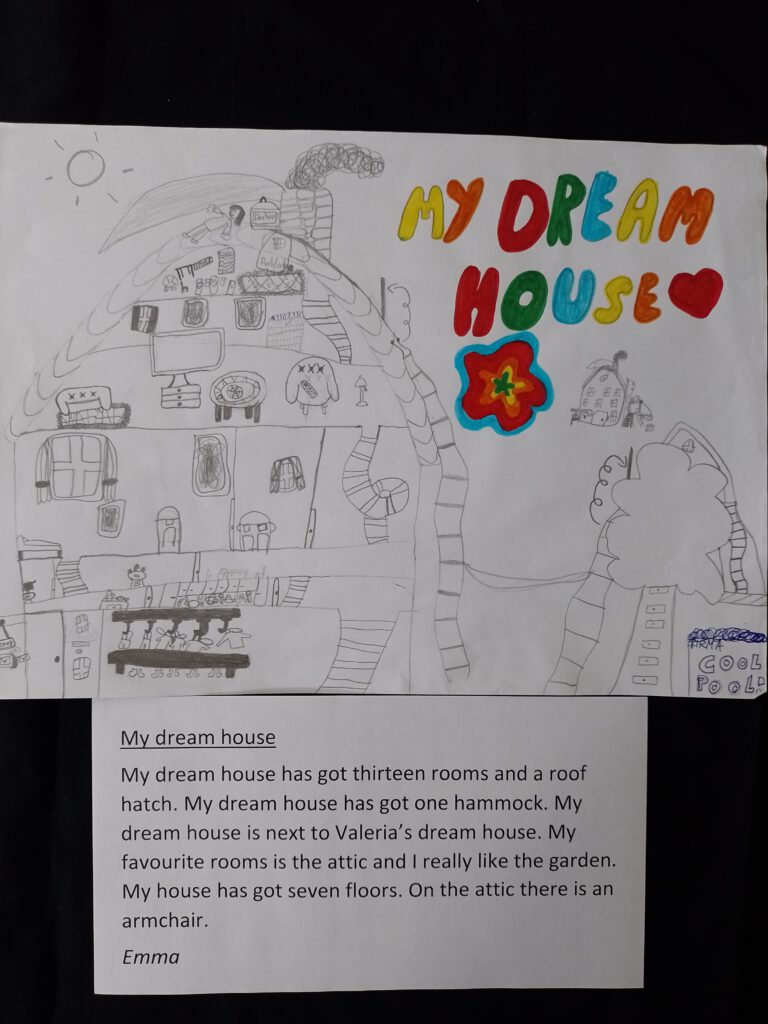 MY DREAM
HOUSE
FIRMA
COOL
POOL
My dream house
My dream house has got thirteen rooms and a roof
hatch. My dream house has got one hammock. My
dream house is next to Valeria’s dream house. My
favourite rooms is the attic and I really like the garden.
My house has got seven floors. On the attic there is an
armchair.
Emma